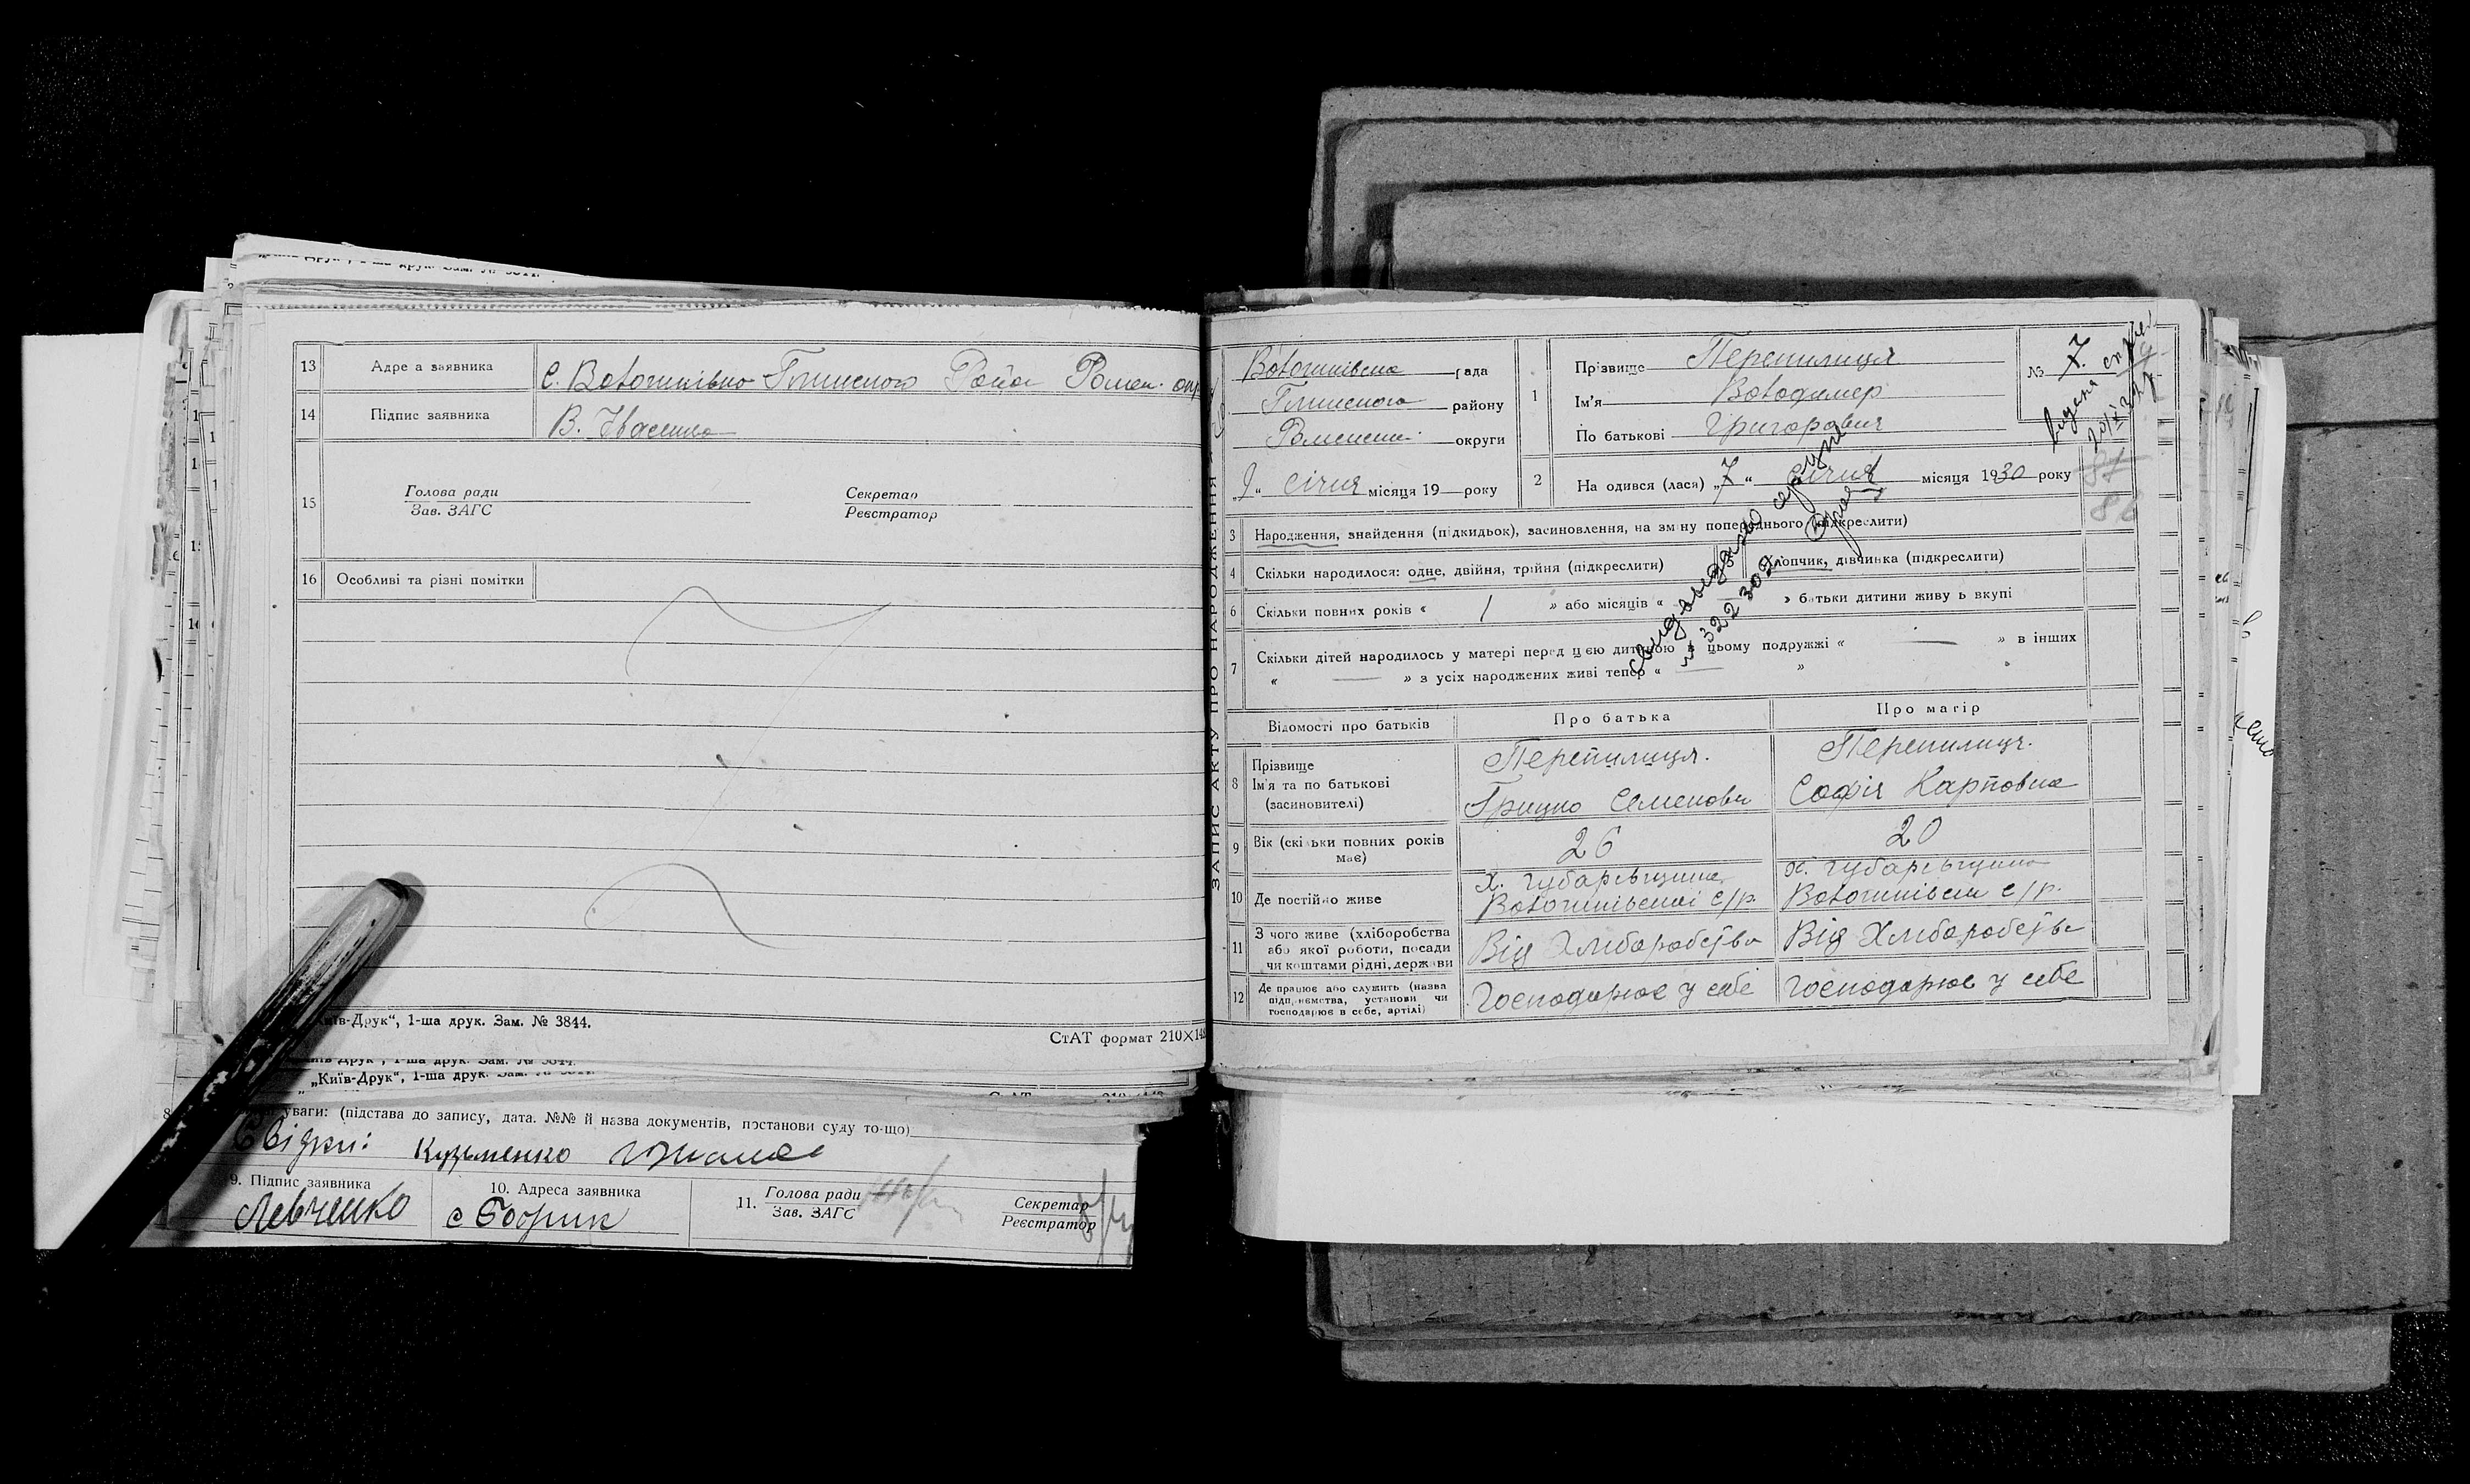 13 Адре а заявника с. Волошнівка Глинсього Район Ромен. окр
14 Підпис заявника В. Івасишо
15 Голова ради
Зав. ЗАГС
Секретар
Реєстратор
16 Особливі та різні помітки
„Київ-Друк“, 1-ша друк. Зам. № 3844.
СтАТ формат 210×148
„Київ-Друк“, 1-ша друк.
уваги: (підстава до запису, дата. №№ й назва документів, постанови суду то-що)
Свідки: Кузьменко
9. Підпис заявника
Левченко
10. Адреса заявника
с Бобрик
11. Голова ради
Зав. ЗАГС
Секретар
Реєстратор
ЗАПИС АКТУ ПРО НАРОДЖЕННЯ
Волошнівська рада
Глинського району
Роменськ. округи
„9“ січня місяця 19 року
1 Прізвище Перепилиця
Ім'я Володимер
По батькові Григорович
№ 7.
Видана
2 На одився (лася) „7“ січня місяця 1930 року
87
86
3 Народження, знайдення (підкидьок), засиновлення, на зміну попереднього (підкреслити)
4 Скільки народилося: одне, двійня, трійня (підкреслити)
Хлопчик, дівчинка (підкреслити)
6 Скільки повних років « 1 » або місяців « — » батьки дитини живу ь вкупі
7 Скільки дітей народилось у матері перед цією дитиною в цьому подружжі « — » в інших
« — » з усіх народжених живі тепер « — »
Відомості про батьків
Про батька
Про матір
8 Прізвище
Ім'я та по батькові
(засиновителі)
Перепилиця.
Грицько Семенович
Перепилиця.
Софія Карповна
9 Вік (скільки повних років має)
26
20
10 Де постійно живе
х. Губарівщина
Волошнівської с/р.
х. Губарівщина
Волошнівськ с/р.
11 З чого живе (хліборобства
або якої роботи, посади
чи коштами рідні, держави
Від Хліборобства
Від Хліборобства
12 Де працює або служить (назва
підприємства, установи чи
господарює в себе, артілі)
Господарює у себе
Господарює у себе